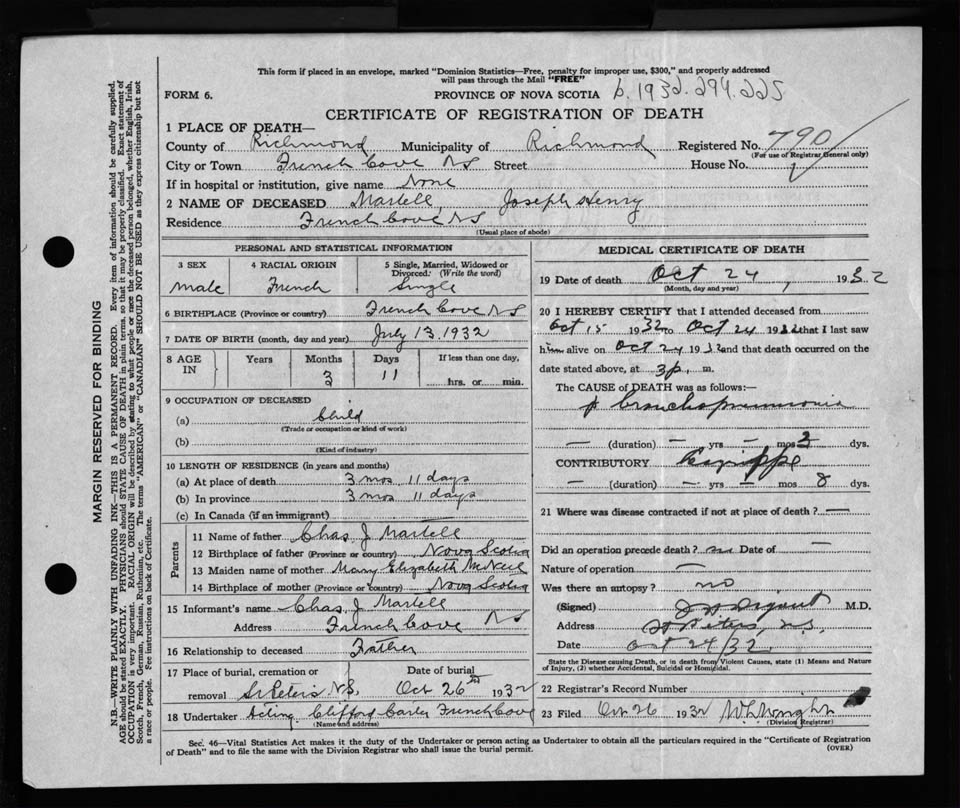 This form if placed in an envelope, marked "Dominion Statistics—Free, penalty for improper use, $300," and properly addressed
will pass through the Mail "FREE"
FORM 6. PROVINCE OF NOVA SCOTIA b. 1932. 294. 225
CERTIFICATE OF REGISTRATION OF DEATH
1 PLACE OF DEATH—
County of Richmond Municipality of Richmond Registered No. 790
(For use of Registrar General only)
City or Town French Cove NS Street House No.
If in hospital or institution, give name None
2 NAME OF DECEASED Martell, Joseph Henry
Residence French Cove NS
(Usual place of abode)
PERSONAL AND STATISTICAL INFORMATION
3 SEX 4 RACIAL ORIGIN 5 Single, Married, Widowed or
Divorced: (Write the word)
male French Single
6 BIRTHPLACE (Province or country) French Cove NS
7 DATE OF BIRTH (month, day and year) July 13. 1932
8 AGE IN Years Months Days If less than one day,
3 11 hrs. or min.
9 OCCUPATION OF DECEASED
(a) Child
(Trade or occupation or kind of work)
(b)
(Kind of industry)
10 LENGTH OF RESIDENCE (in years and months)
(a) At place of death 3 mos 11 days
(b) In province 3 mos 11 days
(c) In Canada (if an immigrant)
Parents
11 Name of father Chas J Martell
12 Birthplace of father (Province or country) Nova Scotia
13 Maiden name of mother Mary Elizabeth McNeil
14 Birthplace of mother (Province or country) Nova Scotia
15 Informant's name Chas J Martell
Address French Cove NS
16 Relationship to deceased Father
17 Place of burial, cremation or Date of burial
removal St Peters N.S. Oct 26th 1932
18 Undertaker Acting Clifford French Cove
(Name and address)
MEDICAL CERTIFICATE OF DEATH
19 Date of death Oct 24, 1932
(Month, day and year)
20 I HEREBY CERTIFY that I attended deceased from
Oct 15 1932 to Oct 24 1932 that I last saw
him alive on Oct 24 1932 and that death occurred on the
date stated above, at 3 p. m.
The CAUSE of DEATH was as follows:—
Bronchopneumonia
— (duration) — yrs — mos 2 dys.
CONTRIBUTORY Grippe
— (duration) — yrs — mos 8 dys.
21 Where was disease contracted if not at place of death? —
Did an operation precede death? no Date of —
Nature of operation —
Was there an autopsy? no
(Signed) M.D.
Address St Peters, N.S.
Date Oct 24/32.
State the Disease causing Death, or in death from Violent Causes, state (1) Means and Nature
of Injury, (2) whether Accidental, Suicidal or Homicidal.
22 Registrar's Record Number
23 Filed Oct 26 1932 Wright
(Division Registrar)
Sec. 46—Vital Statistics Act makes it the duty of the Undertaker or person acting as Undertaker to obtain all the particulars required in the "Certificate of Registration
of Death" and to file the same with the Division Registrar who shall issue the burial permit. (OVER)
MARGIN RESERVED FOR BINDING
N.B.—WRITE PLAINLY WITH UNFADING INK—THIS IS A PERMANENT RECORD. Every item of information should be carefully supplied.
AGE should be stated EXACTLY. PHYSICIANS should STATE CAUSE OF DEATH in plain terms, so that it may be properly classified. Exact statement of
OCCUPATION is very important. RACIAL ORIGIN will be described by stating to what people or race the deceased person belonged, whether English, Irish,
Scotch, French, German, Russian, Ruthenian, etc. The terms "AMERICAN" or "CANADIAN" SHOULD NOT BE USED as they express citizenship but not
a race or people. See instructions on back of Certificate.